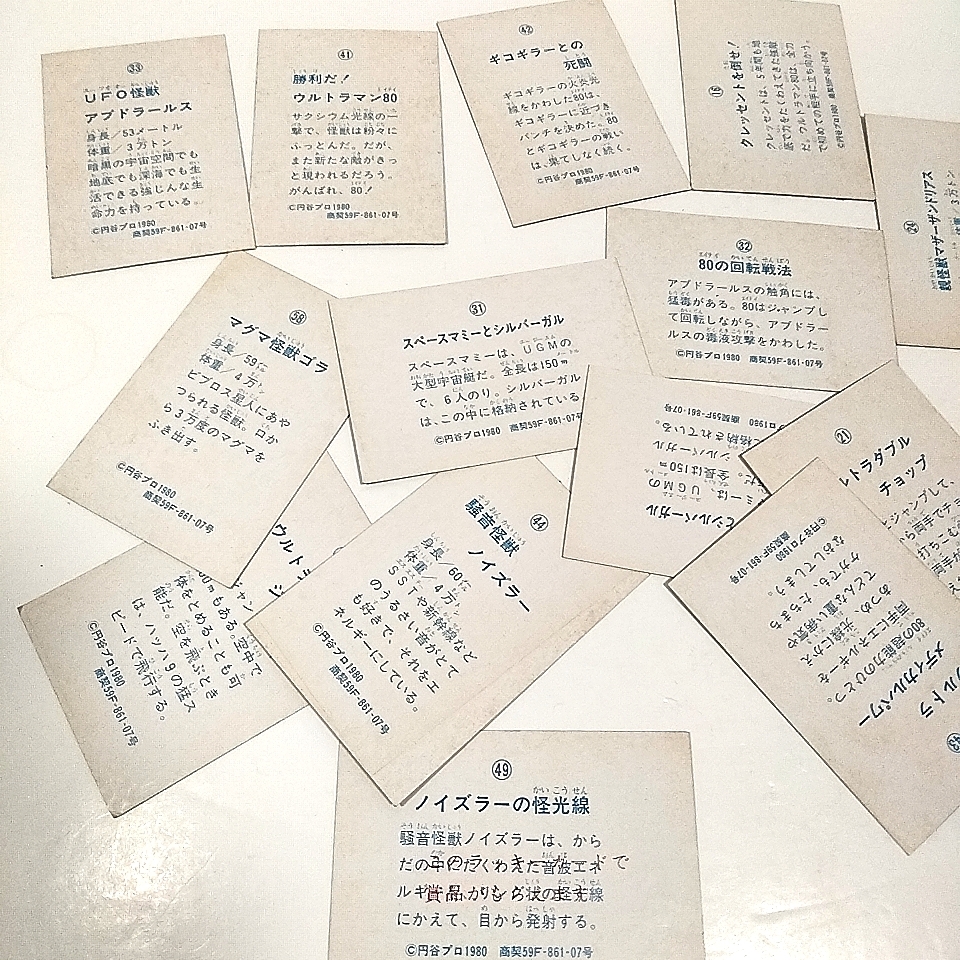 33
UFO怪獣
アブドラールス
身長/53メートル
体重/3万トン
暗黒の宇宙空間でも
地底でも深海でも生
活できる強じんな生
命力を持っている。
©円谷プロ1980
商契59F-861-07号
41
勝利だ!
ウルトラマン80
サクシウム光線の一
撃で、怪獣は粉々に
ふっとんだ。だが、
また新たな敵がきっ
と現われるだろう。
がんばれ、80!
©円谷プロ1980
商契59F-861-07号
42
ギコギラーとの
死闘
ギコギラーの火炎光
線をかわした80は、
ギコギラーに近づき
パンチを決めた。80
とギコギラーの戦い
は、果てしなく続く。
©円谷プロ1980
商契59F-861-07号
16
クレッセントを倒せ!
クレッセントは、5年間も地
底で力をたくわえてきた強敵
だ。ウルトラマン80は、全力
で初めての相手に立ち向かう。
©円谷プロ1980 商契59F-861-07号
24
親怪獣マザーザンドリアス
体重/3万トン
32
80の回転戦法
アブドラールスの触角には、
猛毒がある。80はジャンプし
て回転しながら、アブドラー
ルスの毒液攻撃をかわした。
©円谷プロ1980 商契59F-861-07号
31
スペースマミーとシルバーガル
スペースマミーは、UGMの
大型宇宙艇だ。全長は150m
で、6人のり。シルバーガル
は、この中に格納されている
©円谷プロ1980 商契59F-861-07号
58
マグマ怪獣ゴラ
身長/59m
体重/4万t
ビブロス星人にあや
つられる怪獣。口か
ら3万度のマグマを
ふき出す。
©円谷プロ1980
商契59F-861-07号
とシルバーガル
ミーは、UGMの
だ。全長は150m
シルバーガル
格納されている。
プロ1980 商契59F-861-07号
21
ルトラダブル
チョップ
ジャンプして、
ら両手でチョ
打ちこむ
ウルトラ
ジャン
0mもある。空中で
体をとめることも可
能だ。空を飛ぶとき
は、ハッハ9の怪ス
ピードで飛行する。
©円谷プロ1980
商契59F-861-07号
44
騒音怪獣
ノイズラー
身長/60m
体重/4万t
SSTや新幹線など
のうるさい音がとて
も好きで、それをエ
ネルギーにしている。
©円谷プロ1980
商契59F-861-07号
43
ウルトラ
メディカルパワー
80の超能力のひとつ。
両手にエネルギーを
あつめ、光線にかえ
てどんな重い病気や
ケガでも、たちまち
なおしてしまう。
©円谷プロ1980
商契59F-861-07号
49
ノイズラーの怪光線
騒音怪獣ノイズラーは、から
だの中にたくわえた音波エネ
ルギーを、リング状の怪光線
にかえて、目から発射する。
©円谷プロ1980 商契59F-861-07号